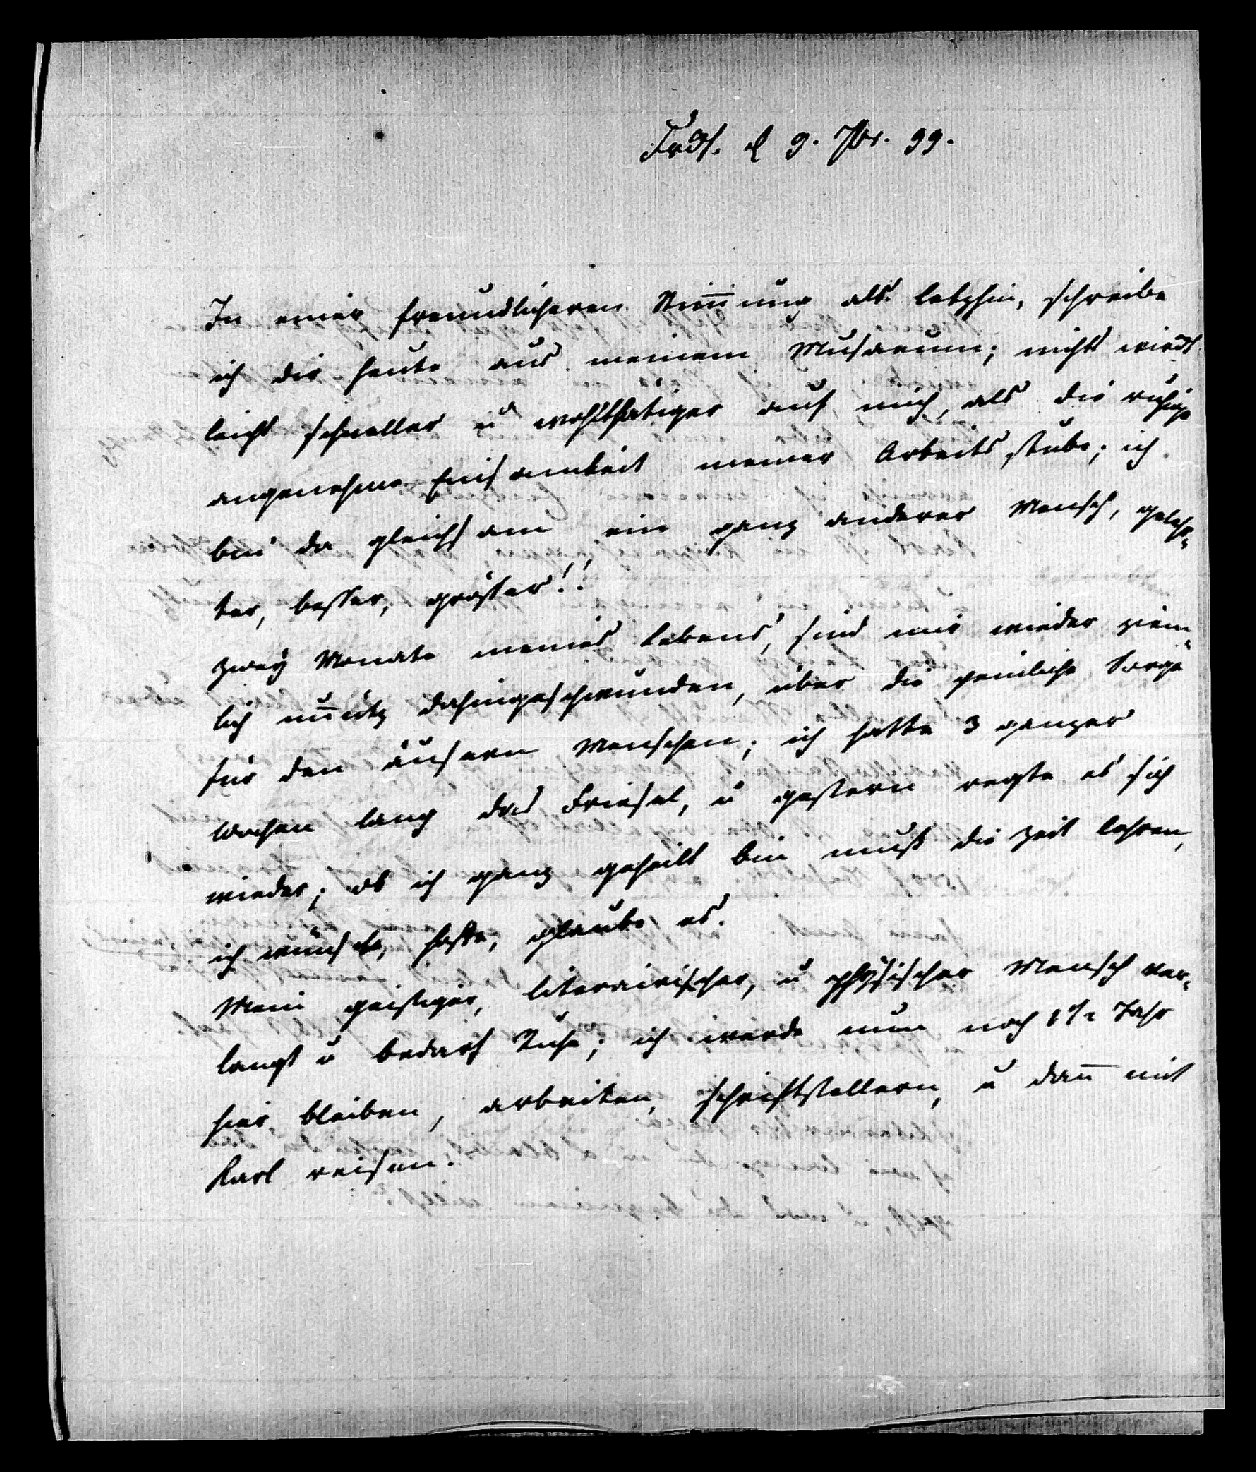 Frdf. d 9. 7br. 99.
In einer freundlicheren Stim̅ung als letzhin, schreibe
ich dir heute aus meinem Musaeum; nichts wirdt
leicht schneller u wohlthätiger auf mich, als die ruhige
angenehme Einsamkeit meiner Arbeitsstube; ich
bin da gleichsam ein ganz anderer Mensch, gelehr-
ter, besser, grösser!!
zwey Monate meines Lebens, sind mir wieder ziem-
lich unnütz dahingeschwunden, über die peinliche Sorge
für den äusern Menschen; ich hatte 3 ganzer
Wochen lang das Friesel, u gestern regte es sich
wieder; ob ich ganz geheilt bin muß die Zeit lehren,
ich wünsche, hoffe, glaube es.
Mein geistiger, literairischer, u physischer Mensch ver-
langt u bedarf Ruhe; ich werde nun noch 1½ Jahr
hier bleiben, arbeiten, schriftstellern, u dan̅ mit
Karl reisen.